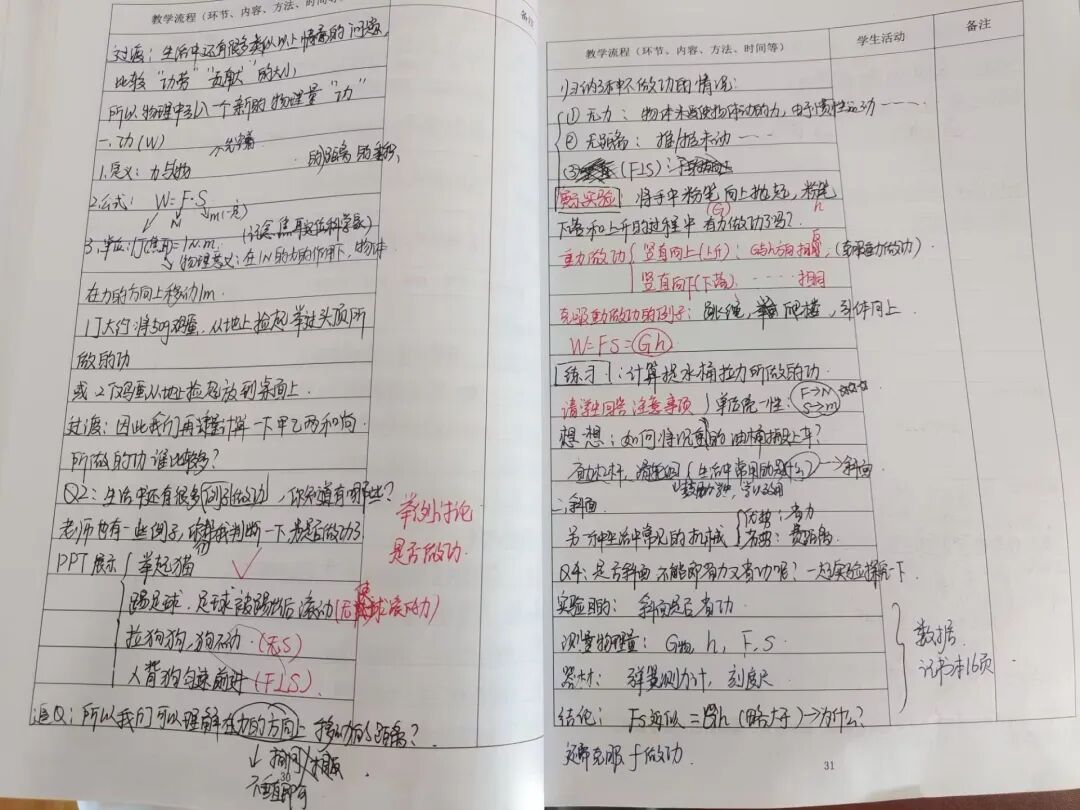 教学流程（环节、内容、方法、时间等）
备注
过渡：生活中还有很多类似以上情景的问题，
比较“功劳”“贡献”的大小
所以物理中引入一个新的物理量“功”
一、功（W）
1.定义：力与物 的距离的乘积
2.公式： W=F·S
N m(一定)
3.单位：J(焦耳)=1N·m （纪念焦耳这位科学家）
物理意义：在1N的力的作用下，物体
在力的方向上移动1m.
1J大约将50g鸡蛋，从地上捡起举过头顶所
做的功
或2个鸡蛋从地上捡起放到桌面上.
过渡：因此我们再计算一下甲乙两和尚
所做的功谁比较多？
Q2：生活中还有很多例子做功，你知道有哪些？
老师也有一些例子，你帮我判断一下，是否做功了
举例讨论
是否做功
PPT展示 举起猫
踢足球，足球被踢出后滚动（无 球滚动力）
拉狗狗，狗不动.（无S）
人背狗匀速前进（F⊥S）.
追Q：所以我们可以理解在力的方向上 移动的距离？
相同 / 相反
不垂直即可
30
教学流程（环节、内容、方法、时间等）
学生活动
备注
归纳3种不做功的情况：
① 无力： 物体未受使物体动的力，由于惯性运动……
② 无距离： 推/拉未动……
③ （F⊥S）：
演示实验：将手中粉笔向上抛起，粉笔
下落和上升的过程中 有力做功了吗？
(G) h
重力做功 竖直向上（上升）：G与h方向相反，（克服重力做功）
竖直向下（下落）. …… 相同
克服重力做功的例子：跳绳，爬楼，引体向上
W=FS=Gh
练习1：计算提水桶拉力所做的功.
请学生回答注意事项 单位统一性： F→N
S→m
想想：如何将沉重的油桶搬上车？
有动杠杆，滑轮组（生活中常用的是什么）→斜面
二、斜面
另一种生活中常见的机械 优势：省力
劣势：费距离
Q4：是否斜面不能即省力又省功呢？一起实验探究一下
实验目的： 斜面是否省功.
测量物理量： G物，h，F，S.
器材： 弹簧测力计，刻度尺
数据
记书本16页
结论： Fs近似=Gh（略大于）→为什么？
还需克服f做功.
31